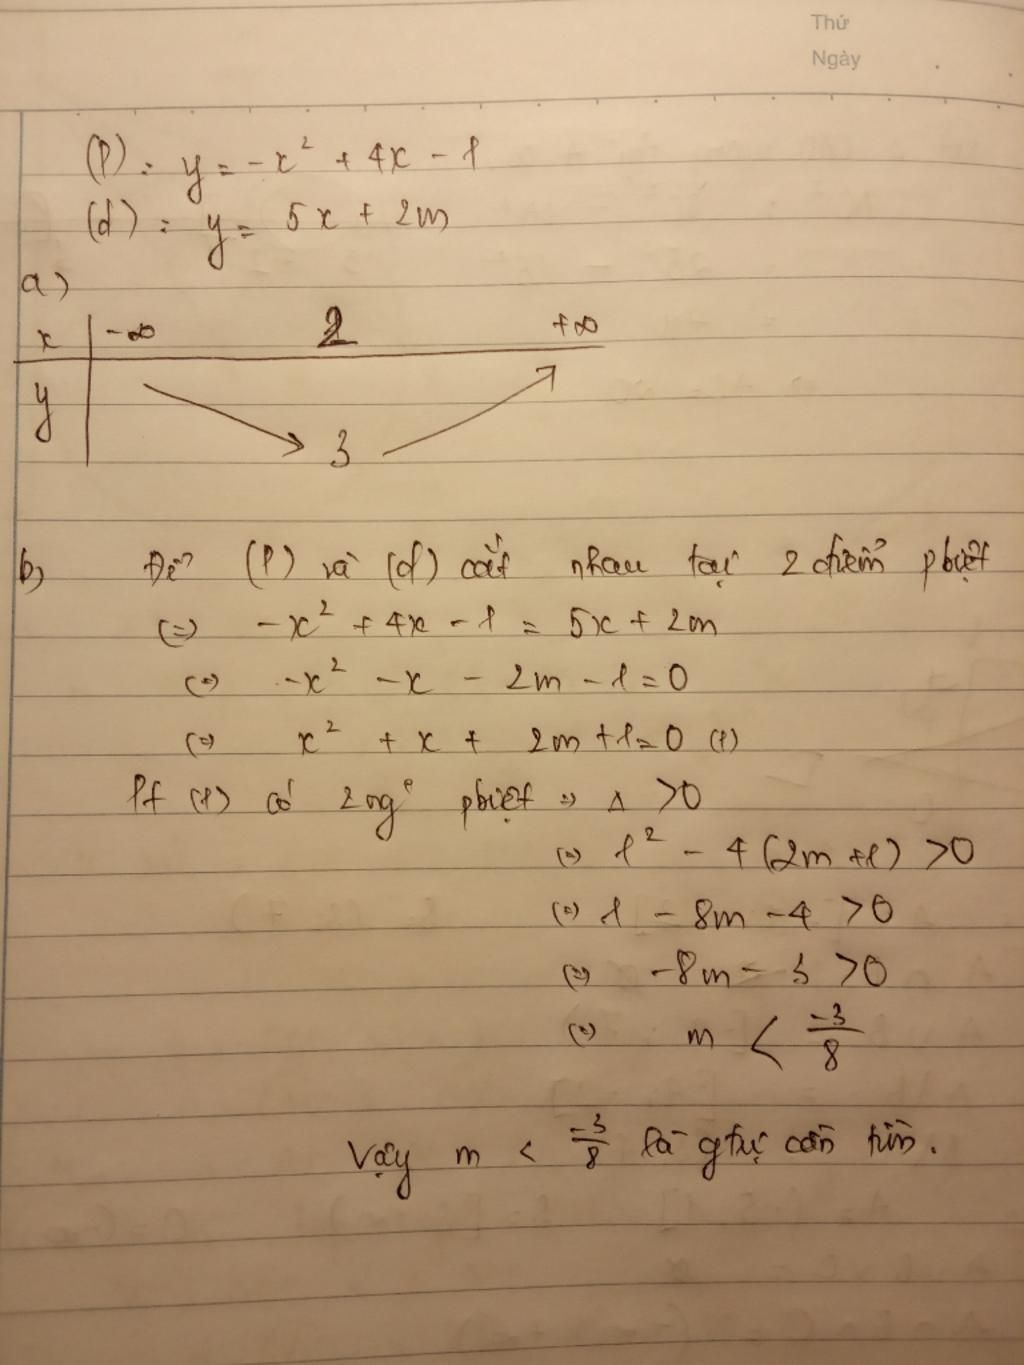 Thứ
Ngày
(P): y = -x² + 4x - 1
(d): y = 5x + 2m
a)
x -∞ 2 +∞
y
3
b) Để (P) và (d) cắt nhau tại 2 điểm pbiệt
(=) -x² + 4x - 1 = 5x + 2m
(=) -x² - x - 2m - 1 = 0
(=) x² + x + 2m + 1 = 0 (1)
Pt (1) có 2 ng° pbiệt => Δ > 0
(=) 1² - 4(2m + 1) > 0
(=) 1 - 8m - 4 > 0
(=) -8m - 3 > 0
(=) m < -3/8
Vậy m < -3/8 là gtrị cần tìm.